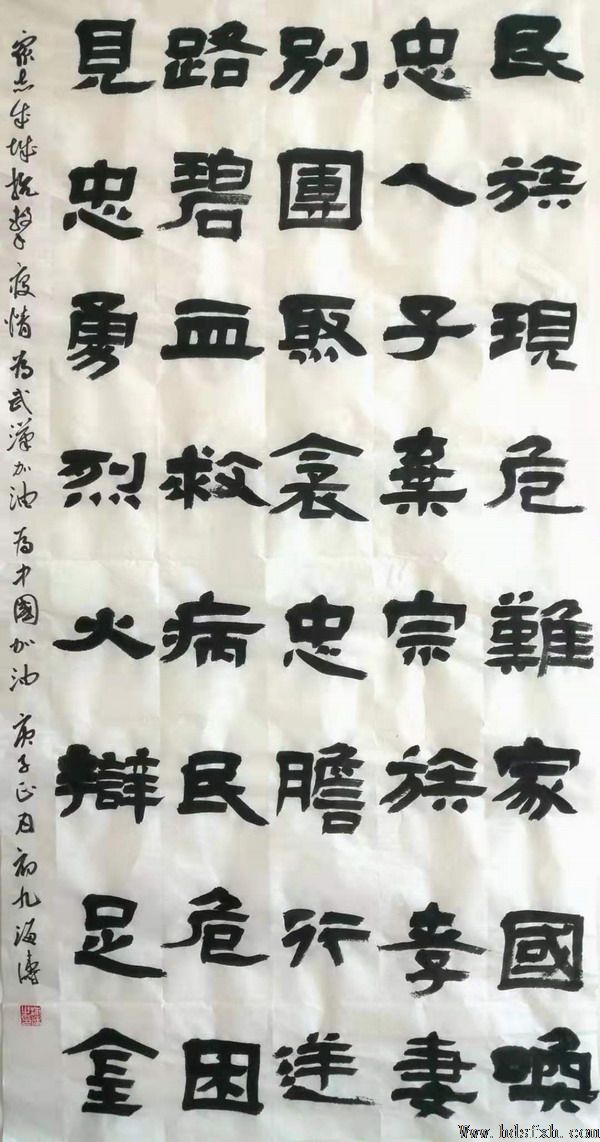 民族現危難家國喚
忠人子棄宗族孝妻
別團聚哀忠膽行逆
路碧血救病民危困
見忠勇烈火辯足金
眾志成城抗擊疫情為武漢加油為中國加油庚子正月初九海濤
Www.hdsfxh.com